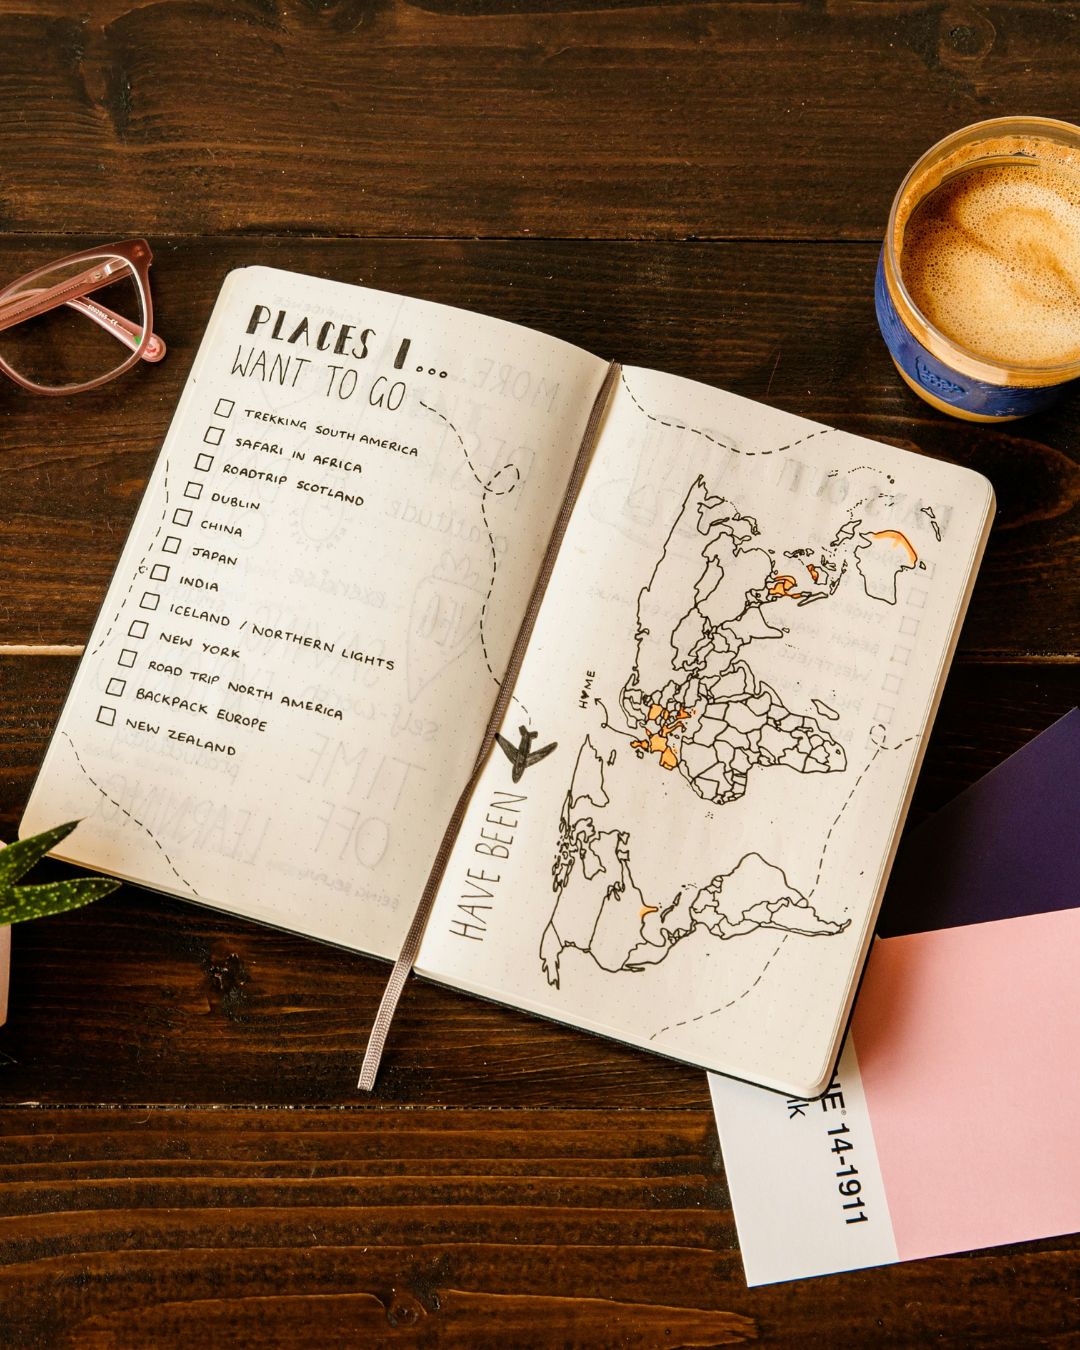 PLACES I...
WANT TO GO
TREKKING SOUTH AMERICA
SAFARI IN AFRICA
ROADTRIP SCOTLAND
DUBLIN
CHINA
JAPAN
INDIA
ICELAND / NORTHERN LIGHTS
NEW YORK
ROAD TRIP NORTH AMERICA
BACKPACK EUROPE
NEW ZEALAND
HAVE BEEN
H♥ME
14-1911